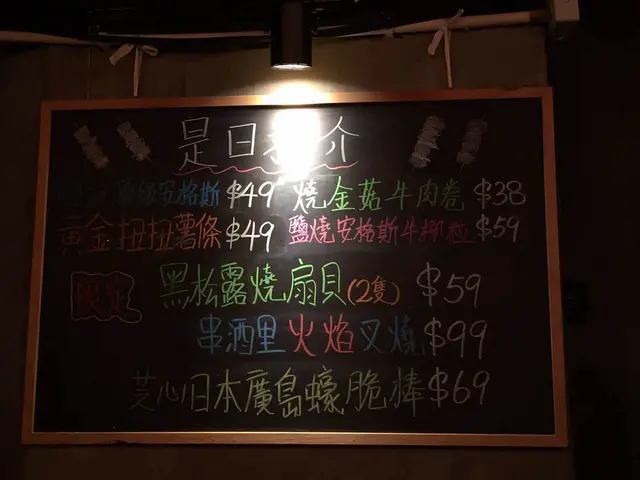 是日推介
級安格斯 $49 燒金菇牛肉卷 $38
黃金扭扭薯條 $49 鹽燒安格斯牛柳粒 $59
限定 黑松露燒扇貝(2隻) $59
串酒里火焰叉燒 $99
芝心日本廣島蠔脆棒 $69